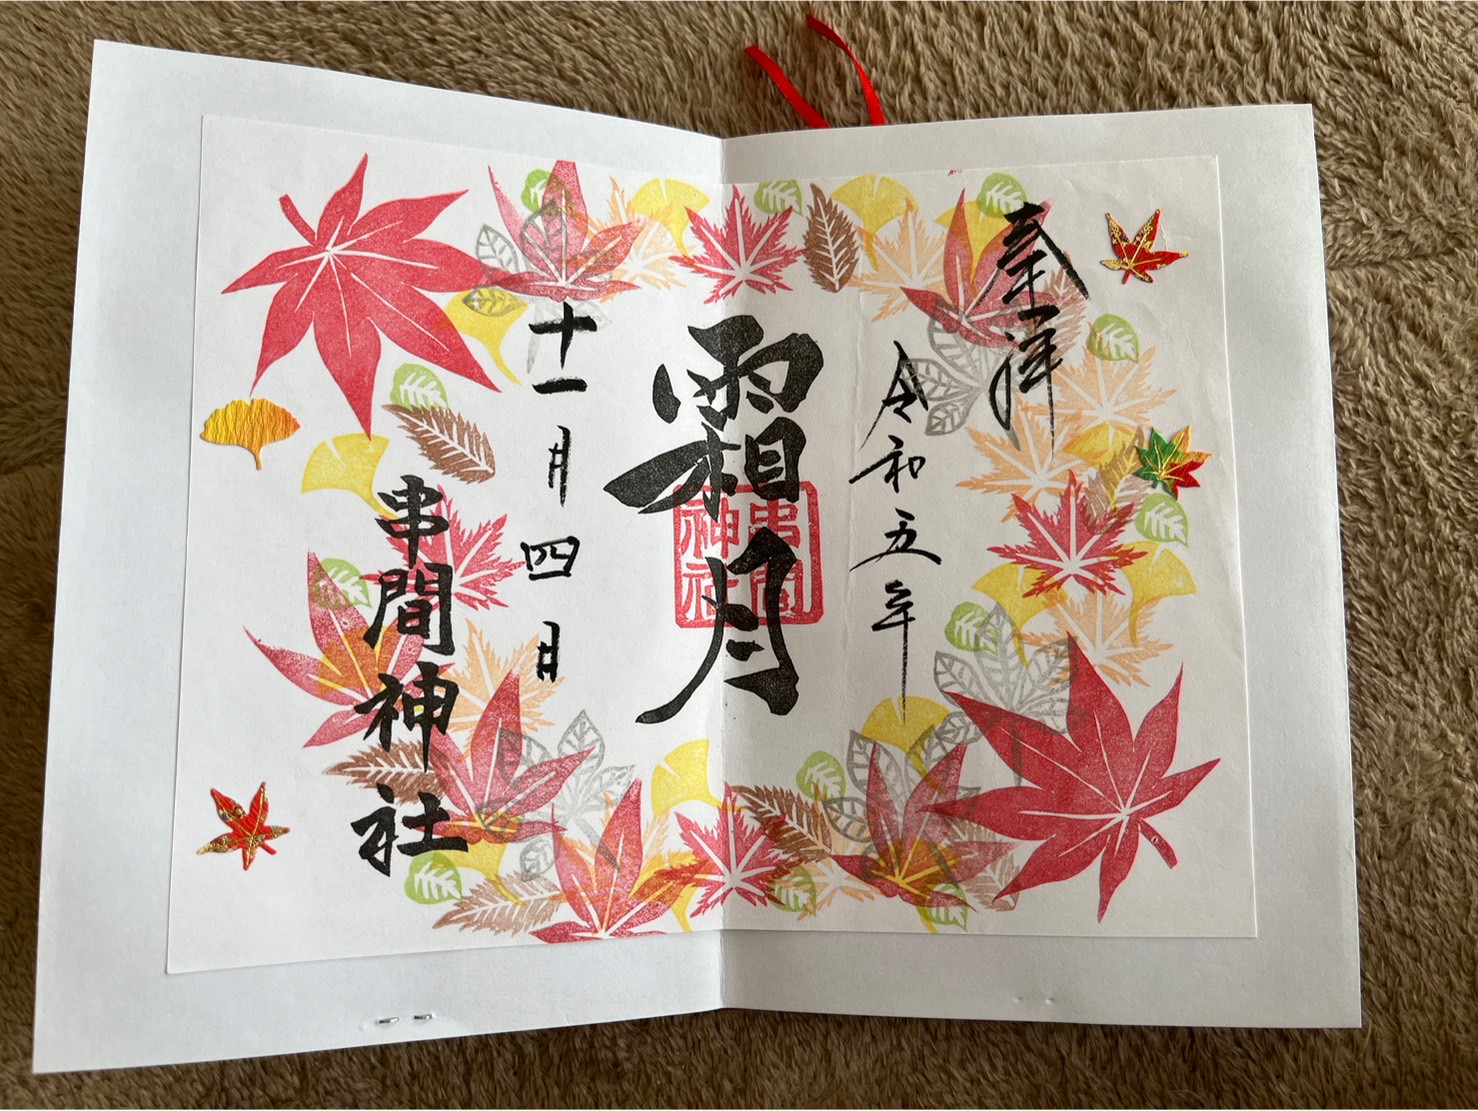 奉拝
令和五年
霜月
串間神社
十一月四日
串間神社